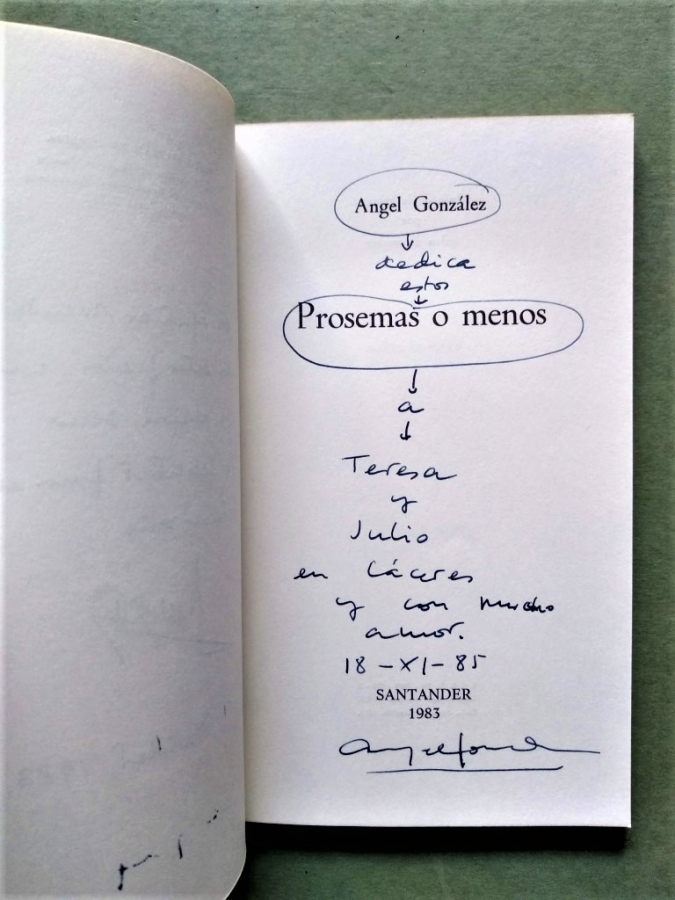 Angel González
dedica
estos
Prosemas o menos
a
Teresa
y
Julio
en Cáceres
y con mucho
amor.
18-XI-85
SANTANDER
1983